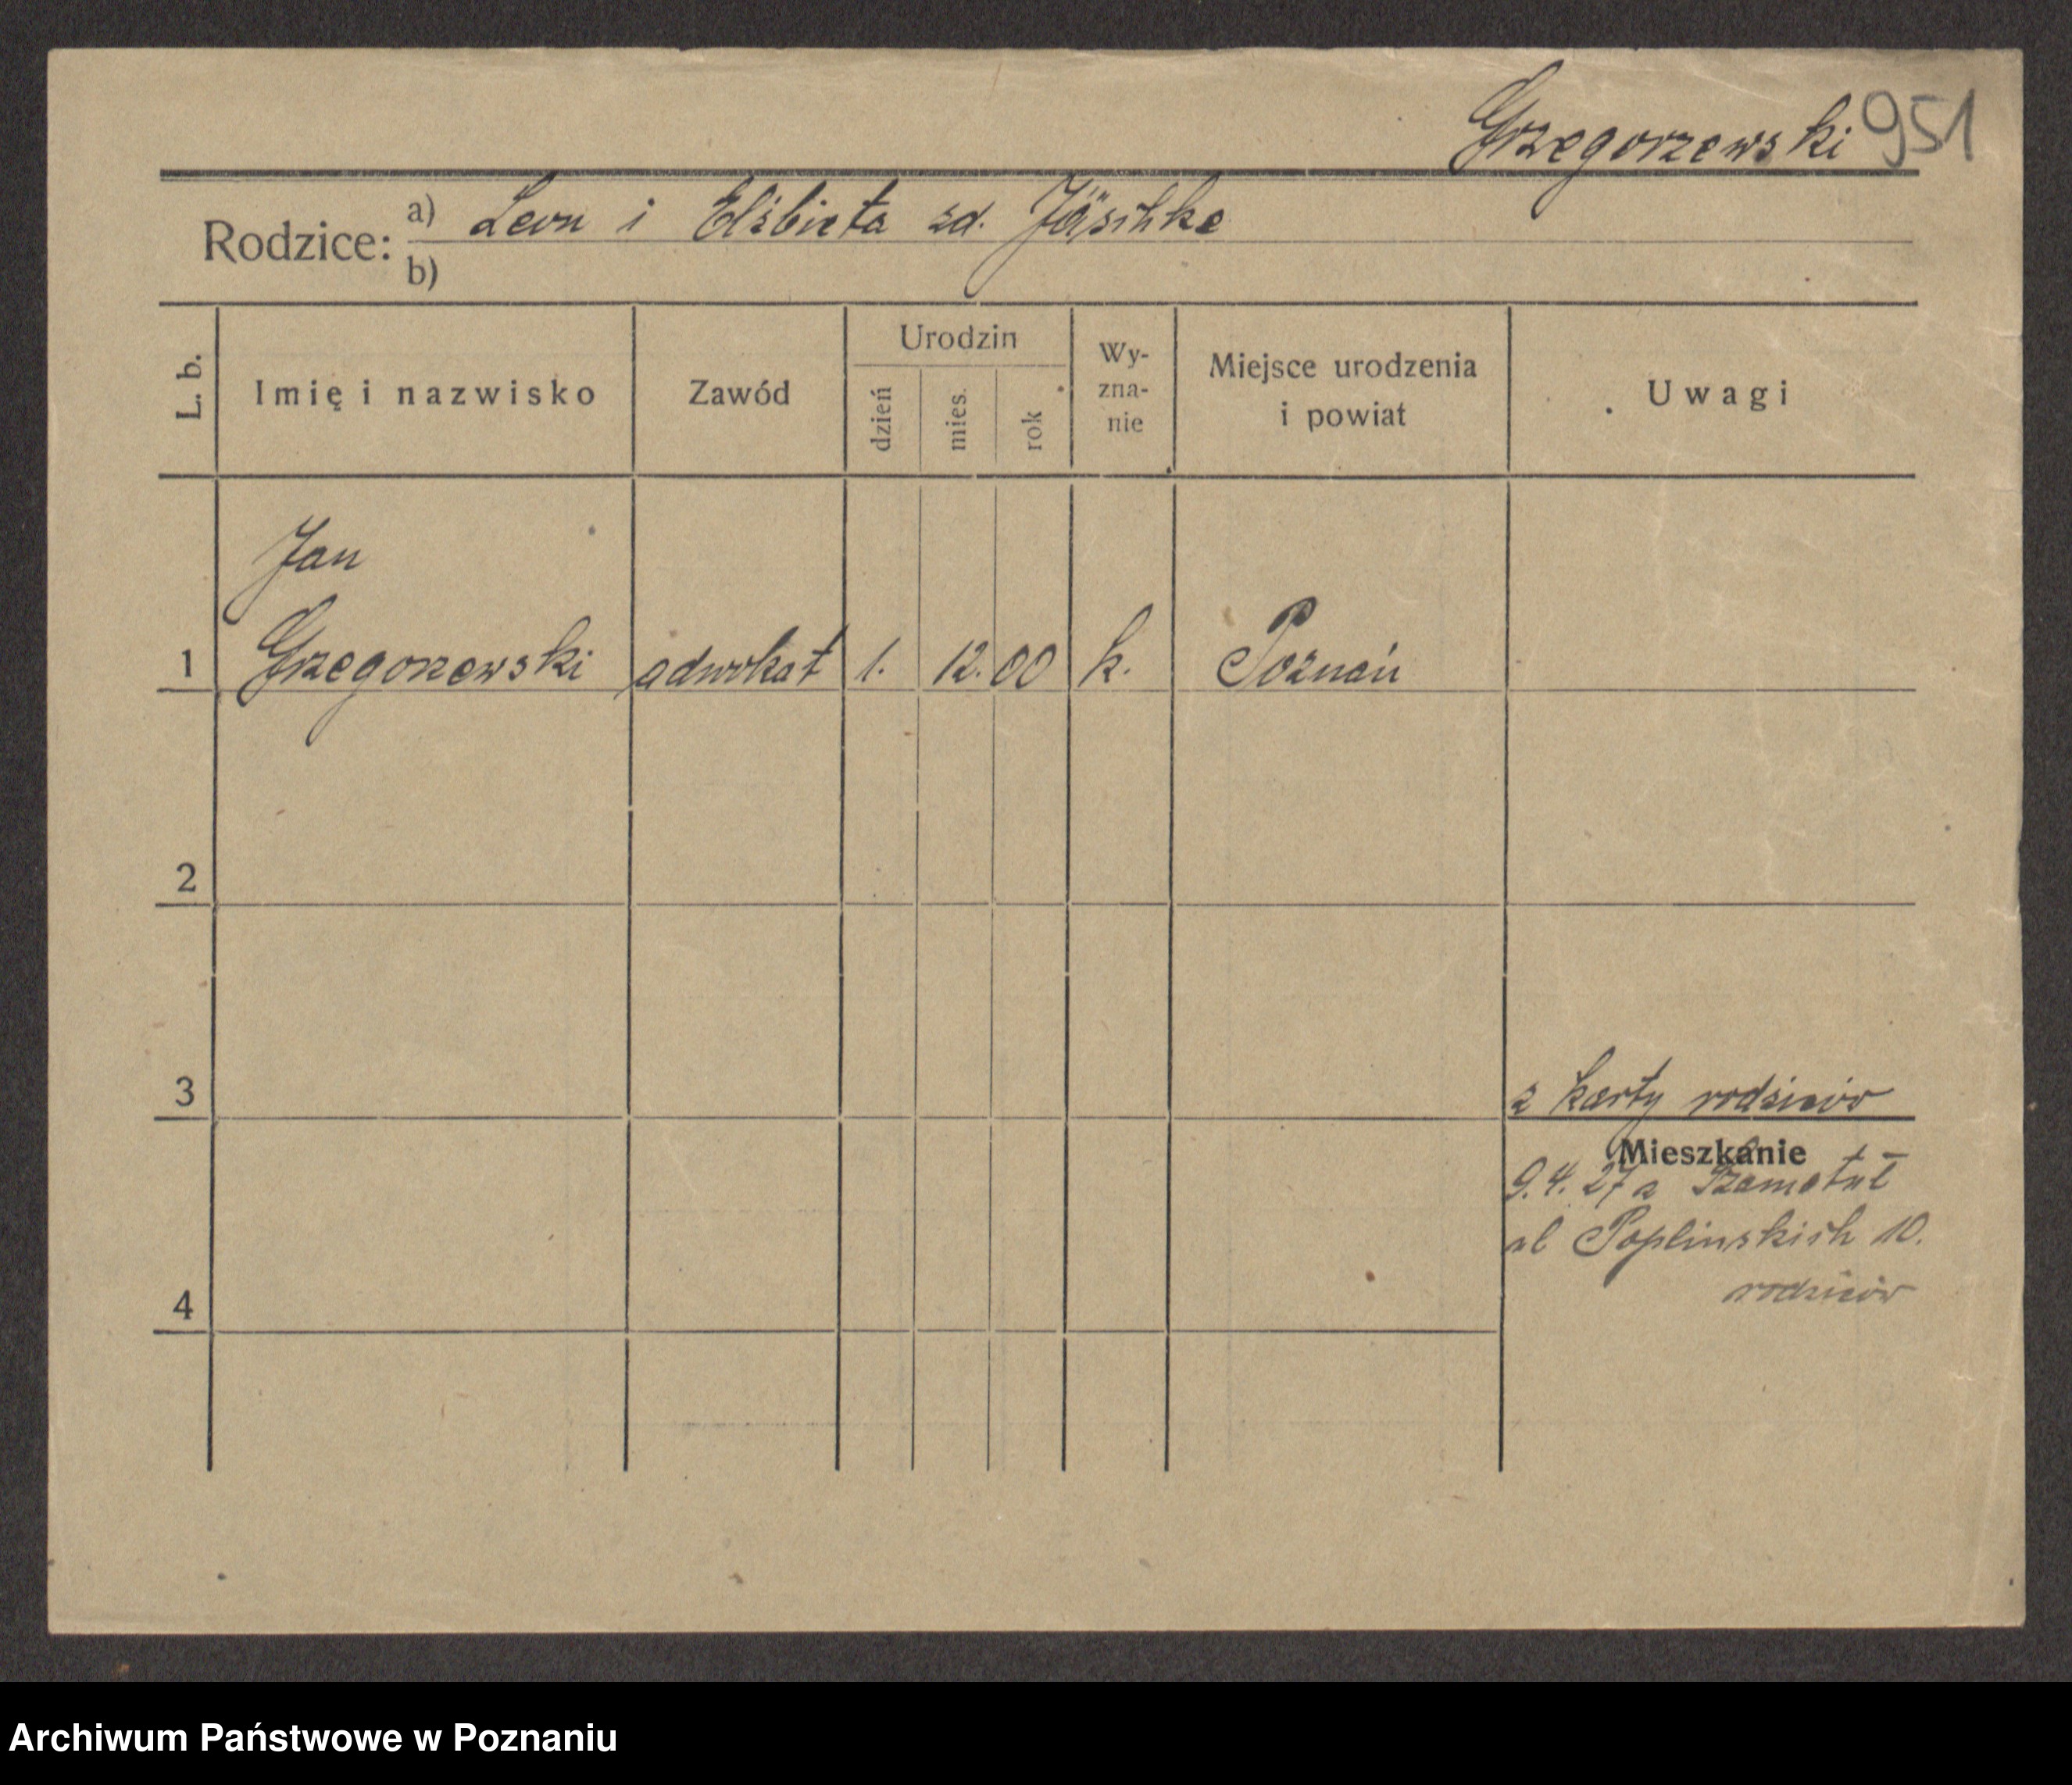 Grzegorzewski 951
Rodzice: a) Leon i Elżbieta zd. Jäschke
b)
L. b.
Imię i nazwisko
Zawód
Urodzin
dzień
mies.
rok
Wy-
zna-
nie
Miejsce urodzenia
i powiat
Uwagi
Jan
1 Grzegorzewski adwokat 1. 12. 00 k. Poznań
2
3 z karty rodziców
Mieszkanie
9.4. 27 z Szamotuł
ul Poplinskich 10.
rodziców
4
Archiwum Państwowe w Poznaniu